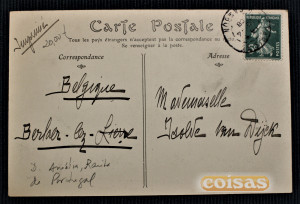 Carte Postale
Tous les pays étrangers n'acceptent pas la correspondance au recto
Se renseigner à la poste.
Correspondance
Adresse
20,00
Belgique
Mademoiselle
Isolde van Dijck
Berlaer-lez-Lierre
de Portugal
coisas